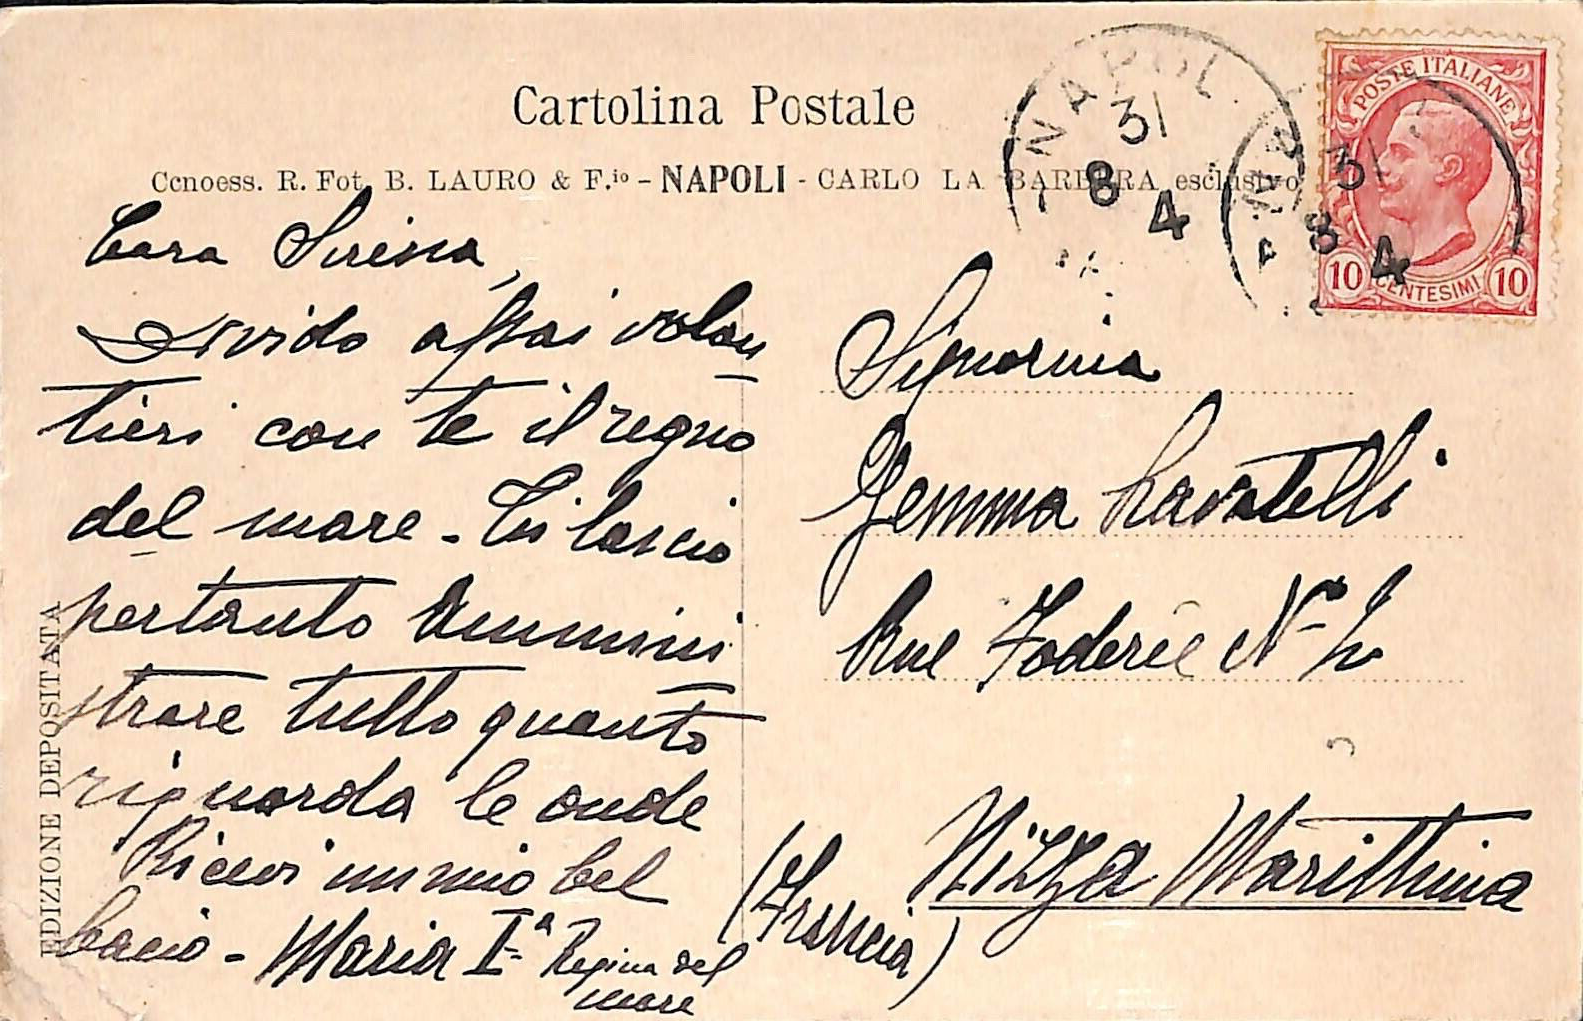 Cartolina Postale
Ccnoess. R. Fot. B. LAURO & F.io - NAPOLI - CARLO LA BARBERA esclusivo
POSTE ITALIANE
10 CENTESIMI 10
NAPOLI
31
8
4
31
8
4
Cara Sirena,
Divido assai volen
tieri con te il regno
del mare - Ti lascio
pertanto ammini
strare tutto quanto
riguarda le onde
Ricevi un mio bel
bacio - Maria Iª Regina del
mare
EDIZIONE DEPOSITATA
Signorina
Gemma Lavatelli
Rue Foderée N-
Nizza Marittima
(Francia)